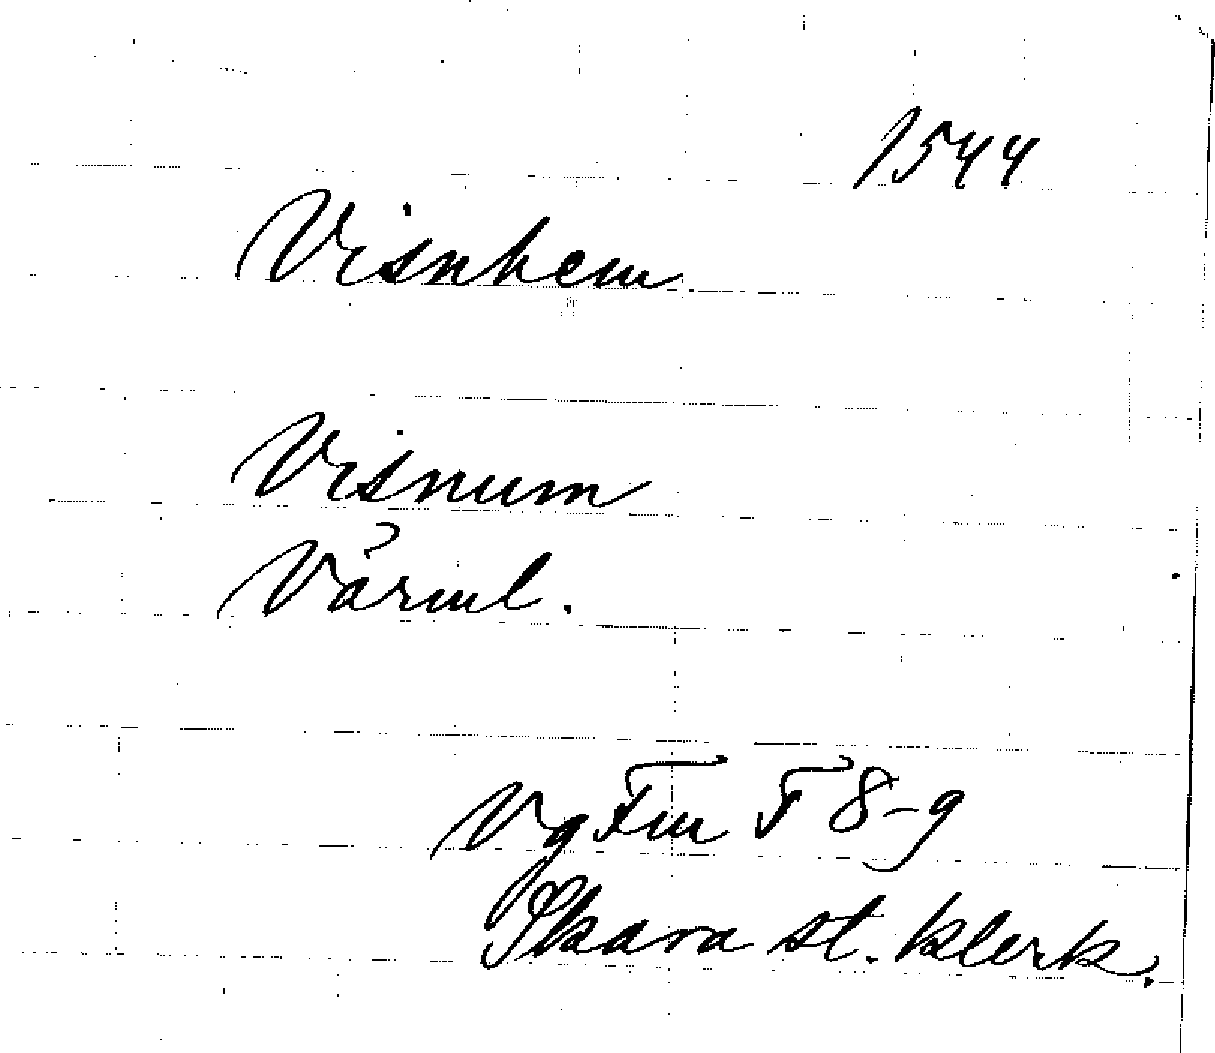 1544
Visnhem.
Visnum
Värml.
Vg Fm F 8-9
Skara st. klerk.